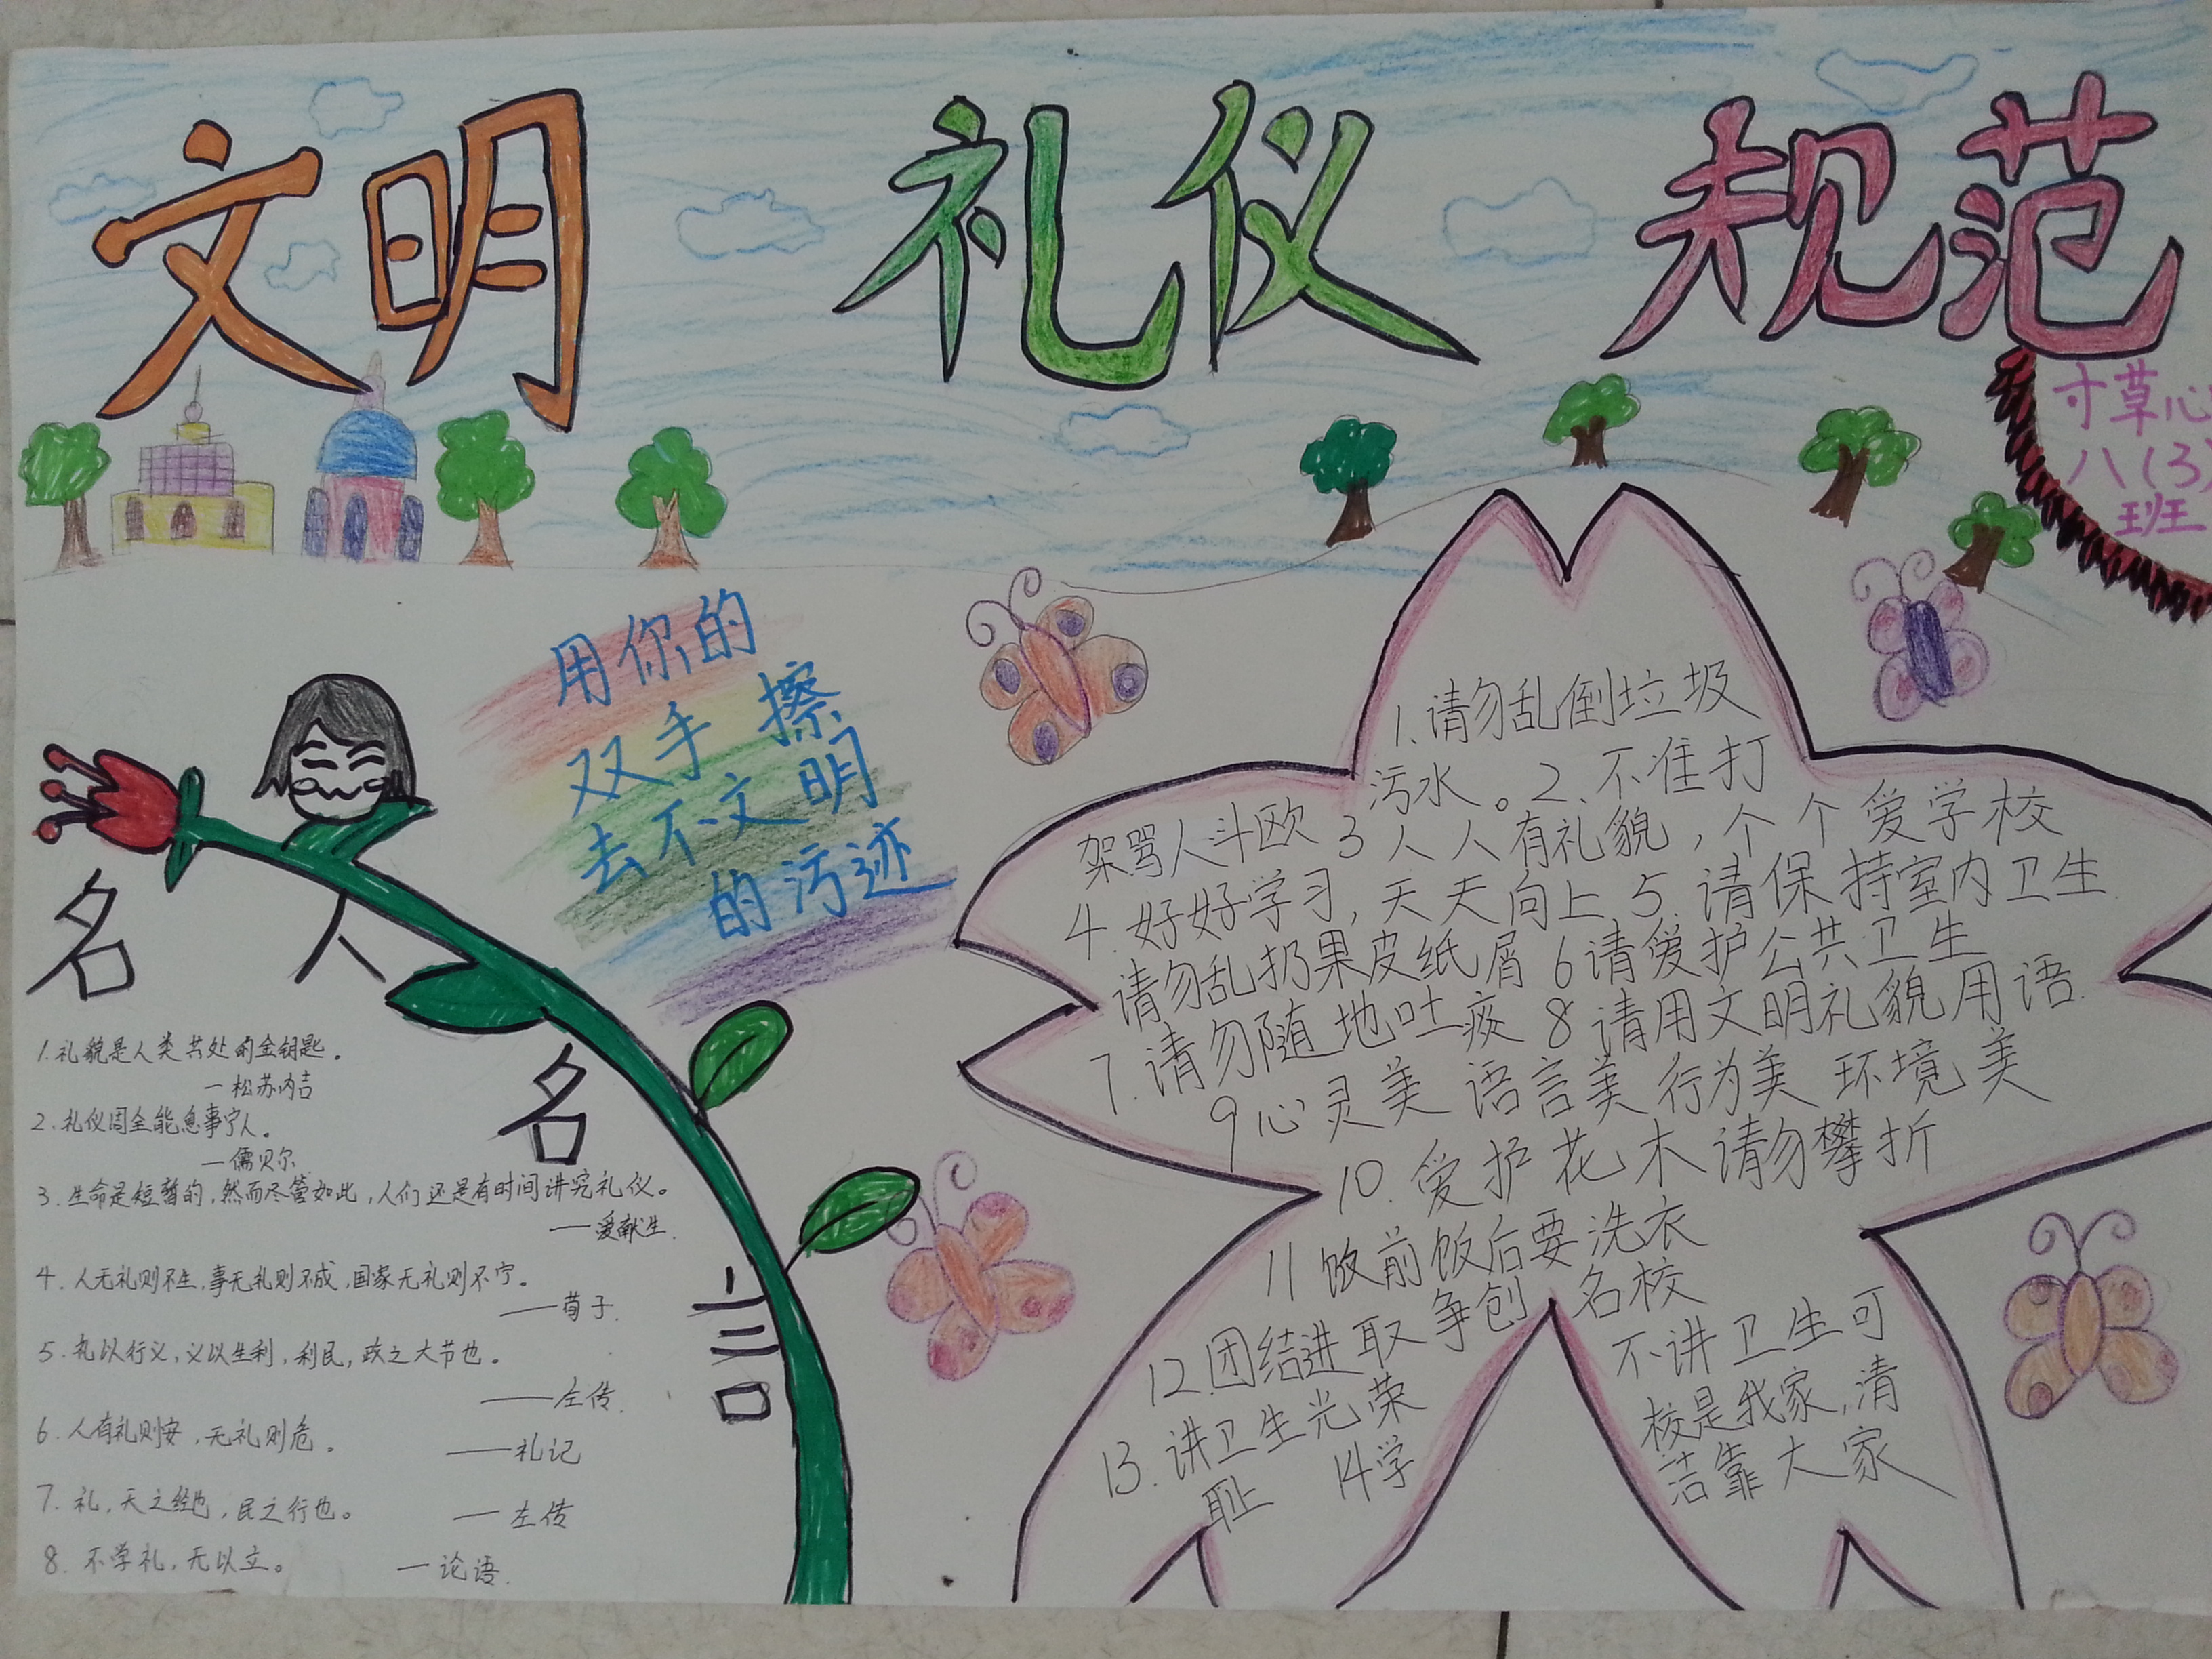 文明 礼仪 规范
寸草心
八(3)
班
用你的
双手擦
去不文明
的污迹
名人名言
1.礼貌是人类共处的金钥匙。
—松苏内吉
2.礼仪周全能息事宁人。
—儒贝尔
3.生命是短暂的,然而尽管如此,人们还是有时间讲究礼仪。
——爱献生.
4.人无礼则不生,事无礼则不成,国家无礼则不宁。
——荀子.
5.礼以行义,义以生利,利民,政之大节也。
——左传.
6.人有礼则安,无礼则危。
——礼记
7.礼,天之经也,民之行也。
—左传
8.不学礼,无以立。
—论语.
1.请勿乱倒垃圾
污水。2.不准打
架骂人斗欧 3人人有礼貌,个个爱学校
4.好好学习,天天向上 5.请保持室内卫生
请勿乱扔果皮纸屑 6请爱护公共卫生
7.请勿随地吐痰 8请用文明礼貌用语.
9心灵美 语言美 行为美 环境美
10.爱护花木请勿攀折
11饭前饭后要洗衣
12.团结进取争创名校
13.讲卫生光荣
不讲卫生可
耻 14学
校是我家,清
洁靠大家